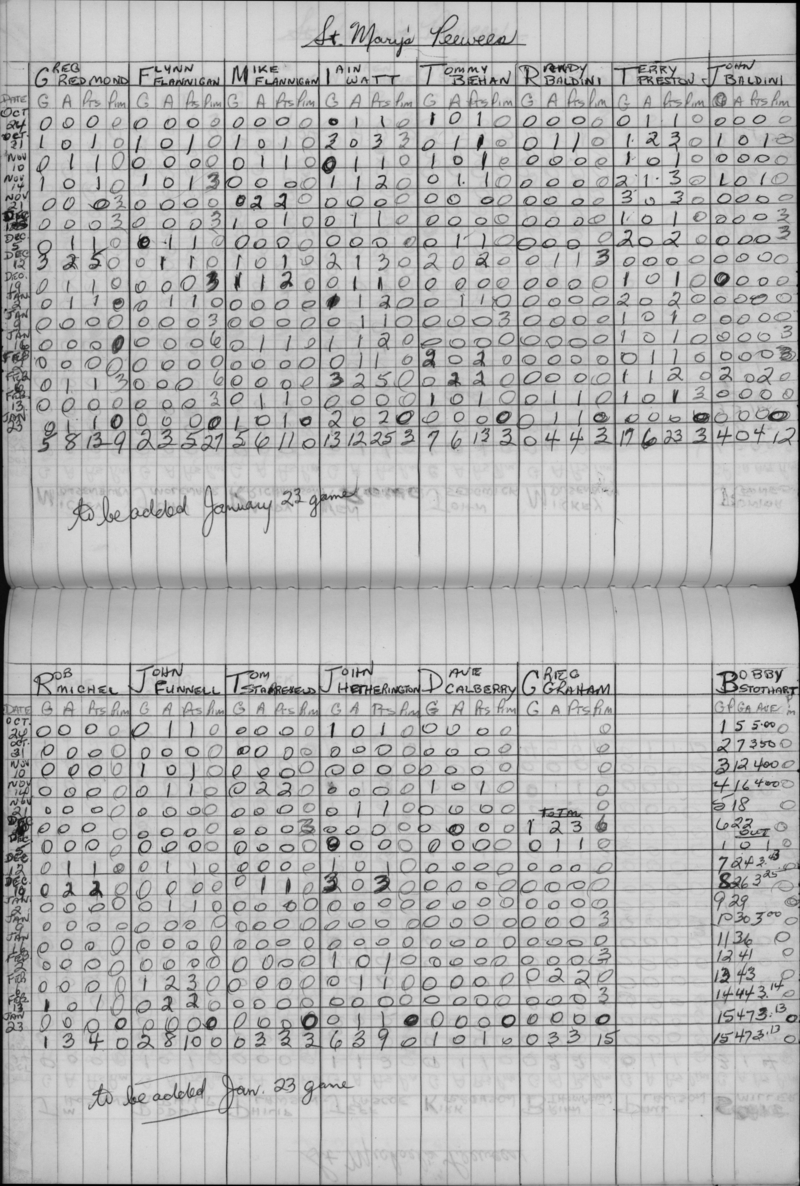 St. Mary's Peewees
GREG REDMOND FLYNN FLANNIGAN MIKE FLANNIGAN IAIN WATT TOMMY BEHAN RANDY BALDINI TERRY PRESTON JOHN BALDINI
DATE G A Pts Pim G A Pts Pim G A Pts Pim G A Pts Pim G A Pts Pim G A Pts Pim G A Pts Pim G A Pts Pim
OCT 24 0 0 0 0 0 0 0 0 0 0 0 0 0 1 1 0 1 0 1 0 0 0 0 0 0 1 1 0 0 0 0 0
OCT. 1 0 1 0 1 0 1 0 1 0 1 0 3 0 3 3 0 1 1 0 0 1 1 0 1 2 3 0 1 0 1 0
NOV 10 0 1 1 0 0 0 0 0 0 1 1 0 0 1 1 0 1 0 1 0 0 0 0 0 1 0 1 0 0 0 0 0
NOV 14 1 0 1 0 1 0 1 3 0 0 0 0 1 1 2 0 0 1 1 0 0 0 0 0 2 1 3 0 1 0 1 0
NOV 21 0 0 0 3 0 0 0 0 0 2 2 0 0 0 0 0 0 0 0 0 0 0 0 0 3 0 3 0 0 0 0 0
0 0 0 3 0 0 0 3 1 0 1 0 0 1 1 0 0 0 0 0 0 0 0 0 1 0 1 0 0 0 0 3
DEC 5 0 1 1 0 0 1 1 0 0 0 0 0 0 0 0 0 0 1 1 0 0 0 0 0 2 0 2 0 0 0 0 3
DEC 12 3 2 5 0 0 1 1 0 1 0 1 0 2 1 3 0 2 0 2 0 0 1 1 3 0 0 0 0 0 0 0 0
DEC. 19 0 1 1 0 0 0 0 3 1 1 2 0 0 1 1 0 0 0 0 0 0 0 0 0 1 0 1 0 0 0 0 0
JAN 2 0 1 1 0 0 1 1 0 0 0 0 0 1 1 2 0 0 1 1 0 0 0 0 0 2 0 2 0 0 0 0 0
JAN 9 0 0 0 0 0 0 0 3 0 0 0 0 0 1 1 0 0 0 0 3 0 0 0 0 1 0 1 0 0 0 0 0
JAN 16 0 0 0 0 0 0 0 6 0 1 1 0 1 1 2 0 0 0 0 0 0 0 0 0 1 0 1 0 0 0 0 3
FEB 2 0 0 0 0 0 0 0 0 0 0 0 0 0 1 1 0 2 0 2 0 0 0 0 0 0 1 1 0 0 0 0 3
FEB 6 0 1 1 3 0 0 0 6 0 0 0 0 3 2 5 0 0 2 2 0 0 0 0 0 1 1 2 0 2 0 2 0
FEB 13 0 0 0 0 0 0 0 3 0 1 1 0 0 0 0 0 1 0 1 0 0 1 1 0 1 0 1 3 0 0 0 0
JAN 23 0 1 1 0 0 0 0 0 1 0 1 0 2 0 2 0 0 0 0 0 0 1 1 0 0 0 0 0 0 0 0 0
5 8 13 9 2 3 5 27 5 6 11 0 13 12 25 3 7 6 13 3 0 4 4 3 17 6 23 3 4 0 4 12
to be added January 23 game
ROB MICHEL JOHN FUNNELL TOM JOHN HETHERINGTON DAVE CALBERRY GREG GRAHAM BOBBY STOTHART
DATE G A Pts Pim G A Pts Pim G A Pts Pim G A Pts Pim G A Pts Pim G A Pts Pim GP GA AVE
OCT. 24 0 0 0 0 0 1 1 0 0 0 0 0 1 0 1 0 0 0 0 0 0 1 5 5.00 0
OCT. 31 0 0 0 0 0 0 0 0 0 0 0 0 0 0 0 0 0 0 0 0 0 2 7 350 0
NOV 10 0 0 0 0 1 0 1 0 0 0 0 0 0 0 0 0 0 0 0 0 0 3 12 400 0
NOV 14 0 0 0 0 0 1 1 0 0 2 2 0 0 0 0 0 1 0 1 0 0 4 16 400 0
NOV 21 0 0 0 0 0 0 0 0 0 0 0 0 0 1 1 0 0 0 0 0 0 5 18 0
TOTAL
DEC 0 0 0 0 0 0 0 0 0 0 0 3 0 0 0 0 0 0 0 0 1 2 3 6 6 22 0
OUT
DEC 5 0 0 0 0 0 0 0 0 0 0 0 0 0 0 0 0 0 0 0 0 0 1 1 0 1 0 1 0
DEC 12 0 1 1 0 0 1 1 0 0 0 0 0 1 0 1 0 0 0 0 0 0 0 0 0 7 24 3.43 0
DEC 19 0 2 2 0 0 0 0 0 0 1 1 0 3 0 3 0 0 0 0 0 0 0 0 0 8 26 3 25 0
JAN 2 0 0 0 0 0 1 1 0 0 0 0 0 0 0 0 0 0 0 0 0 0 0 0 0 9 29 0
JAN 9 0 0 0 0 0 0 0 0 0 0 0 0 0 0 0 0 0 0 0 0 0 0 0 3 10 30 3.00 0
JAN 16 0 0 0 0 0 0 0 0 0 0 0 0 0 0 0 0 0 0 0 0 0 0 0 0 11 36 0
FEB 2 0 0 0 0 0 0 0 0 0 0 0 0 1 0 1 0 0 0 0 0 0 0 0 3 12 41 0
FEB 6 0 0 0 0 1 2 3 0 0 0 0 0 0 1 1 0 0 0 0 0 0 2 2 0 13 43 0
FEB 13 1 0 1 0 0 2 2 0 0 0 0 0 0 0 0 0 0 0 0 0 0 0 0 3 14 44 3.14 0
JAN 23 0 0 0 0 0 0 0 0 0 0 0 0 0 1 1 0 0 0 0 0 0 0 0 0 15 47 3.13 0
1 3 4 0 2 8 10 0 0 3 3 3 6 3 9 0 1 0 1 0 0 3 3 15 15 47 3.13 0
to be added Jan. 23 game